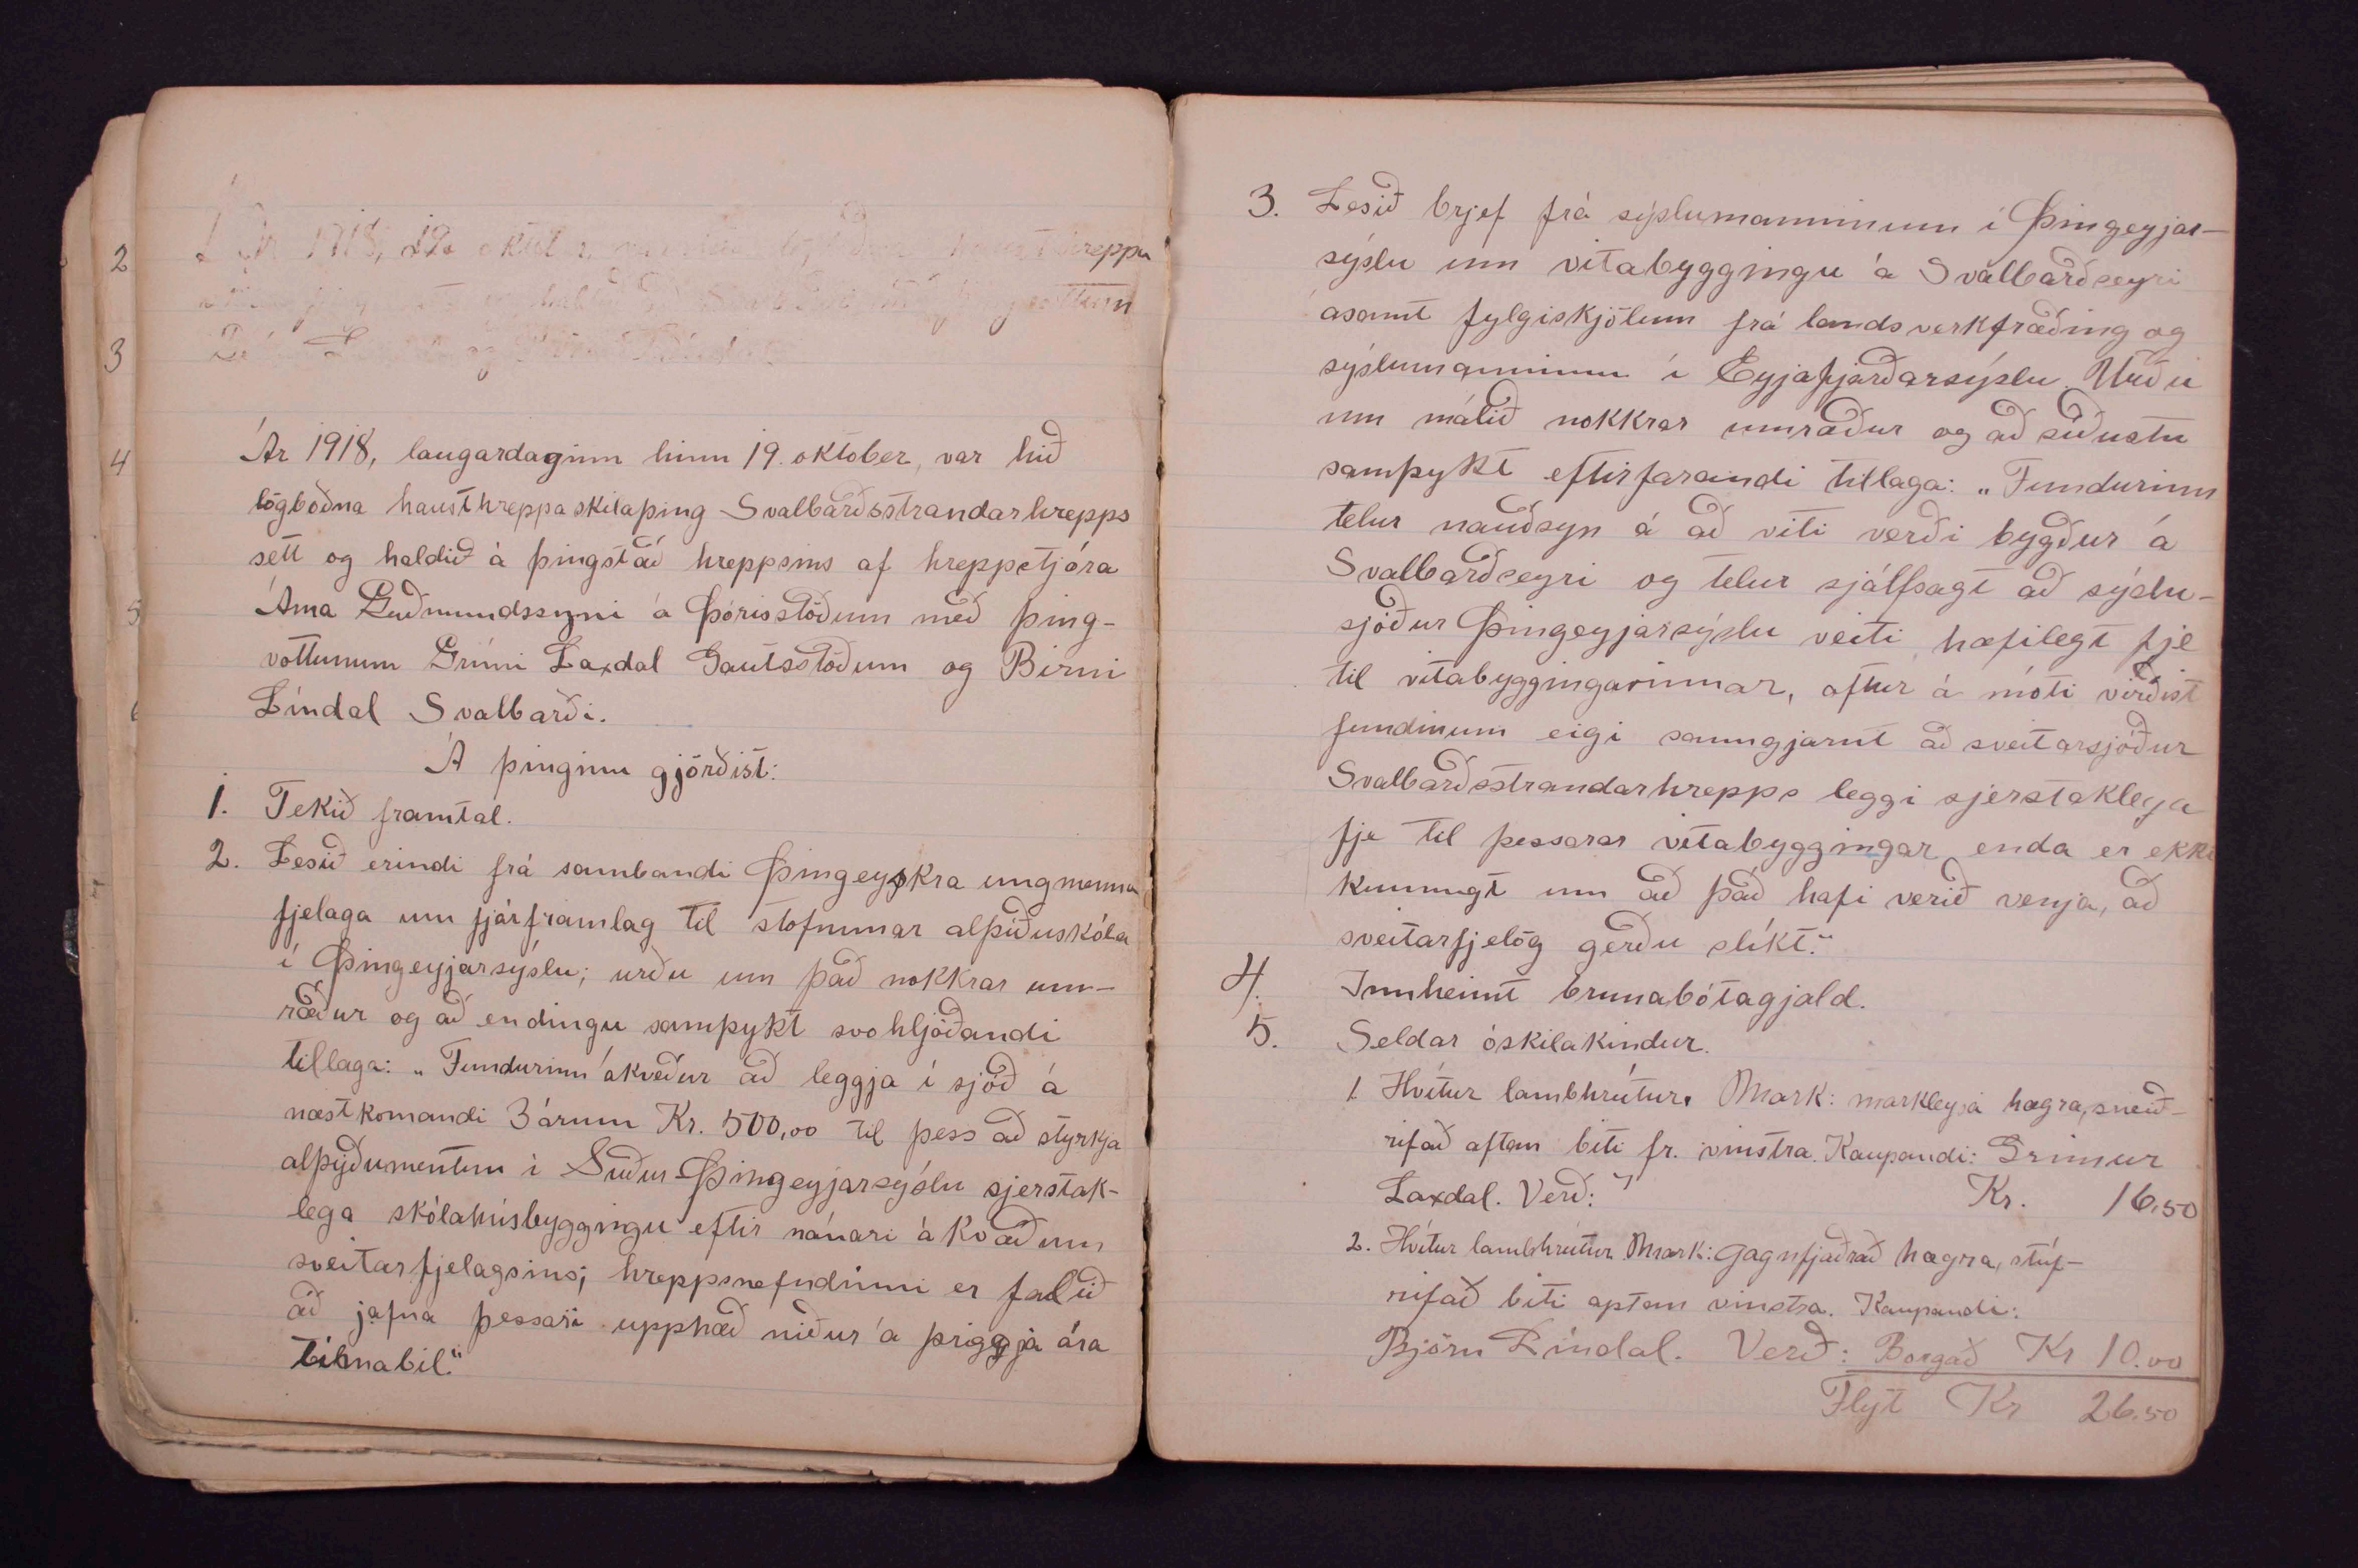 Ár 1918, 19. október hreppa
Ár 1918, laugardaginn hinn 19. október, var hið
lögboðna hausthreppaskilaþing Svalbarðsstrandarhrepps
sett og haldið á þingstað hreppsins af hreppstjóra
Árna Guðmundssyni á Þórisstöðum með þing-
vottunum Grími Laxdal Gautsstöðum og Birni
Líndal Svalbarði.
Á þinginu gjörðist:
1. Tekið framtal.
2. Lesið erindi frá sambandi Þingeyskra ungmenna
fjelaga um fjárframlag til stofnunar alþýðuskóla
í Þingeyjarsýslu; urðu um það nokkrar um-
ræður og að endingu samþykt svohljóðandi
tillaga: „Fundurinn ákveður að leggja í sjóð á
næstkomandi 3 árum Kr. 500,00 til þess að styrkja
alþýðumentun í Suður-Þingeyjarsýslu sjerstak-
lega skólahúsbyggingu eftir nánari ákvæðum
sveitarfjelagsins; hreppsnefndinni er falið
að jafna þessari upphæð niður á þriggja ára
tímabil."
3. Lesið brjef frá sýslumanninum í Þingeyjar-
sýslu um vitabyggingu á Svalbarðseyri
ásamt fylgiskjölum frá landsverkfræðing og
sýslumanninum í Eyjafjarðarsýslu. Urðu
um málið nokkrar umræður og að síðustu
samþykt eftirfarandi tillaga: „Fundurinn
telur nauðsyn á að viti verði bygður á
Svalbarðseyri og telur sjálfsagt að sýslu-
sjóður Þingeyjarsýslu veiti hæfilegt fje
til vitabyggingarinnar, aftur á móti virðist
fundinum eigi sanngjarnt að sveitarsjóður
Svalbarðsstrandarhrepps leggi sjerstaklega
fje til þessarar vitabyggingar enda er ekki
kunnugt um að það hafi verið venja, að
sveitarfjelög gerðu slíkt."
4. Innheimt brunabótagjald.
5. Seldar óskilakindur.
1. Hvítur lambhrútur. Mark: markleysa hægra, sneið-
rifað aftan biti fr. vinstra. Kaupandi: Grímur
Laxdal. Verð: Kr. 16,50
2. Hvítur lambhrútur Mark: Gagnfjaðrað hægra, stúf-
rifað biti aptan vinstra. Kaupandi:
Björn Líndal. Verð: Borgað Kr 10.00
Flyt Kr 26.50
2
3
4
5